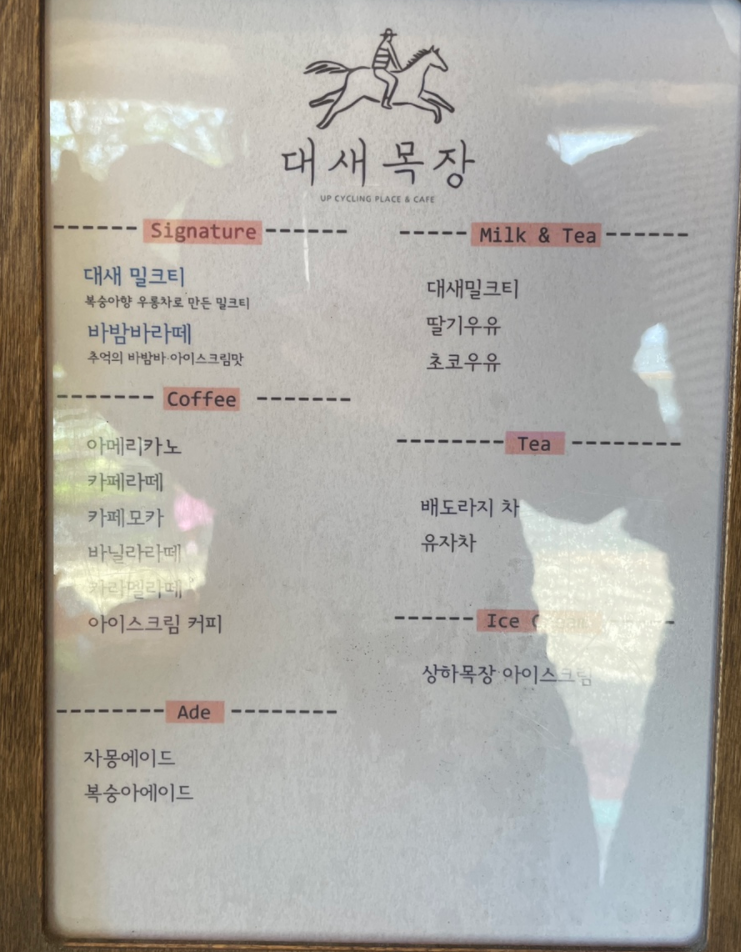 대새목장
UP CYCLING PLACE & CAFE
Signature
대새 밀크티
복숭아향 우롱차로 만든 밀크티
바밤바라떼
추억의 바밤바 아이스크림맛
Coffee
아메리카노
카페라떼
카페모카
바닐라라떼
카라멜라떼
아이스크림 커피
Ade
자몽에이드
복숭아에이드
Milk & Tea
대새밀크티
딸기우유
초코우유
Tea
배도라지 차
유자차
Ice Cream
상하목장 아이스크림